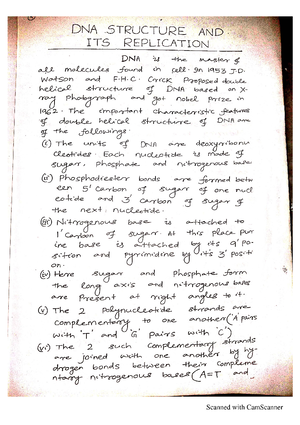 DNA STRUCTURE AND
ITS REPLICATION
DNA is the master of
all molecules found in cell. In 1953 J.D.
Watson and F.H.C. Crick Proposed double
helical structure of DNA based on X-
ray Photograph and got nobel prize in
1962. The important characteristic features
of double helical structure of DNA are
of the followings:
(i) The units of DNA are deoxyribonu
cleotides. Each nucleotide is made of
sugar, Phosphate and nitrogenous base.
(ii) Phosphodiester bonds are formed betw
een 5' carbon of sugar of one nucl
eotide and 3' carbon of sugar of
the next nucleotide.
(iii) Nitrogenous base is attached to
1' Carbon of sugar. At this place pur
ine base is attached by its 9' Po-
sition and Pyrimidine by its 3' positi
on.
(iv) Here sugar and Phosphate form
the long axis and nitrogenous bases
are Present at right angles to it.
(v) The 2 Polynucleotide strands are
complementary to one another (A pairs
with 'T' and 'G' pairs with 'C')
(vi) The 2 such complementary strands
are joined with one another by hy-
drogen bonds between their compleme
ntary nitrogenous bases (A=T and
Scanned with CamScanner